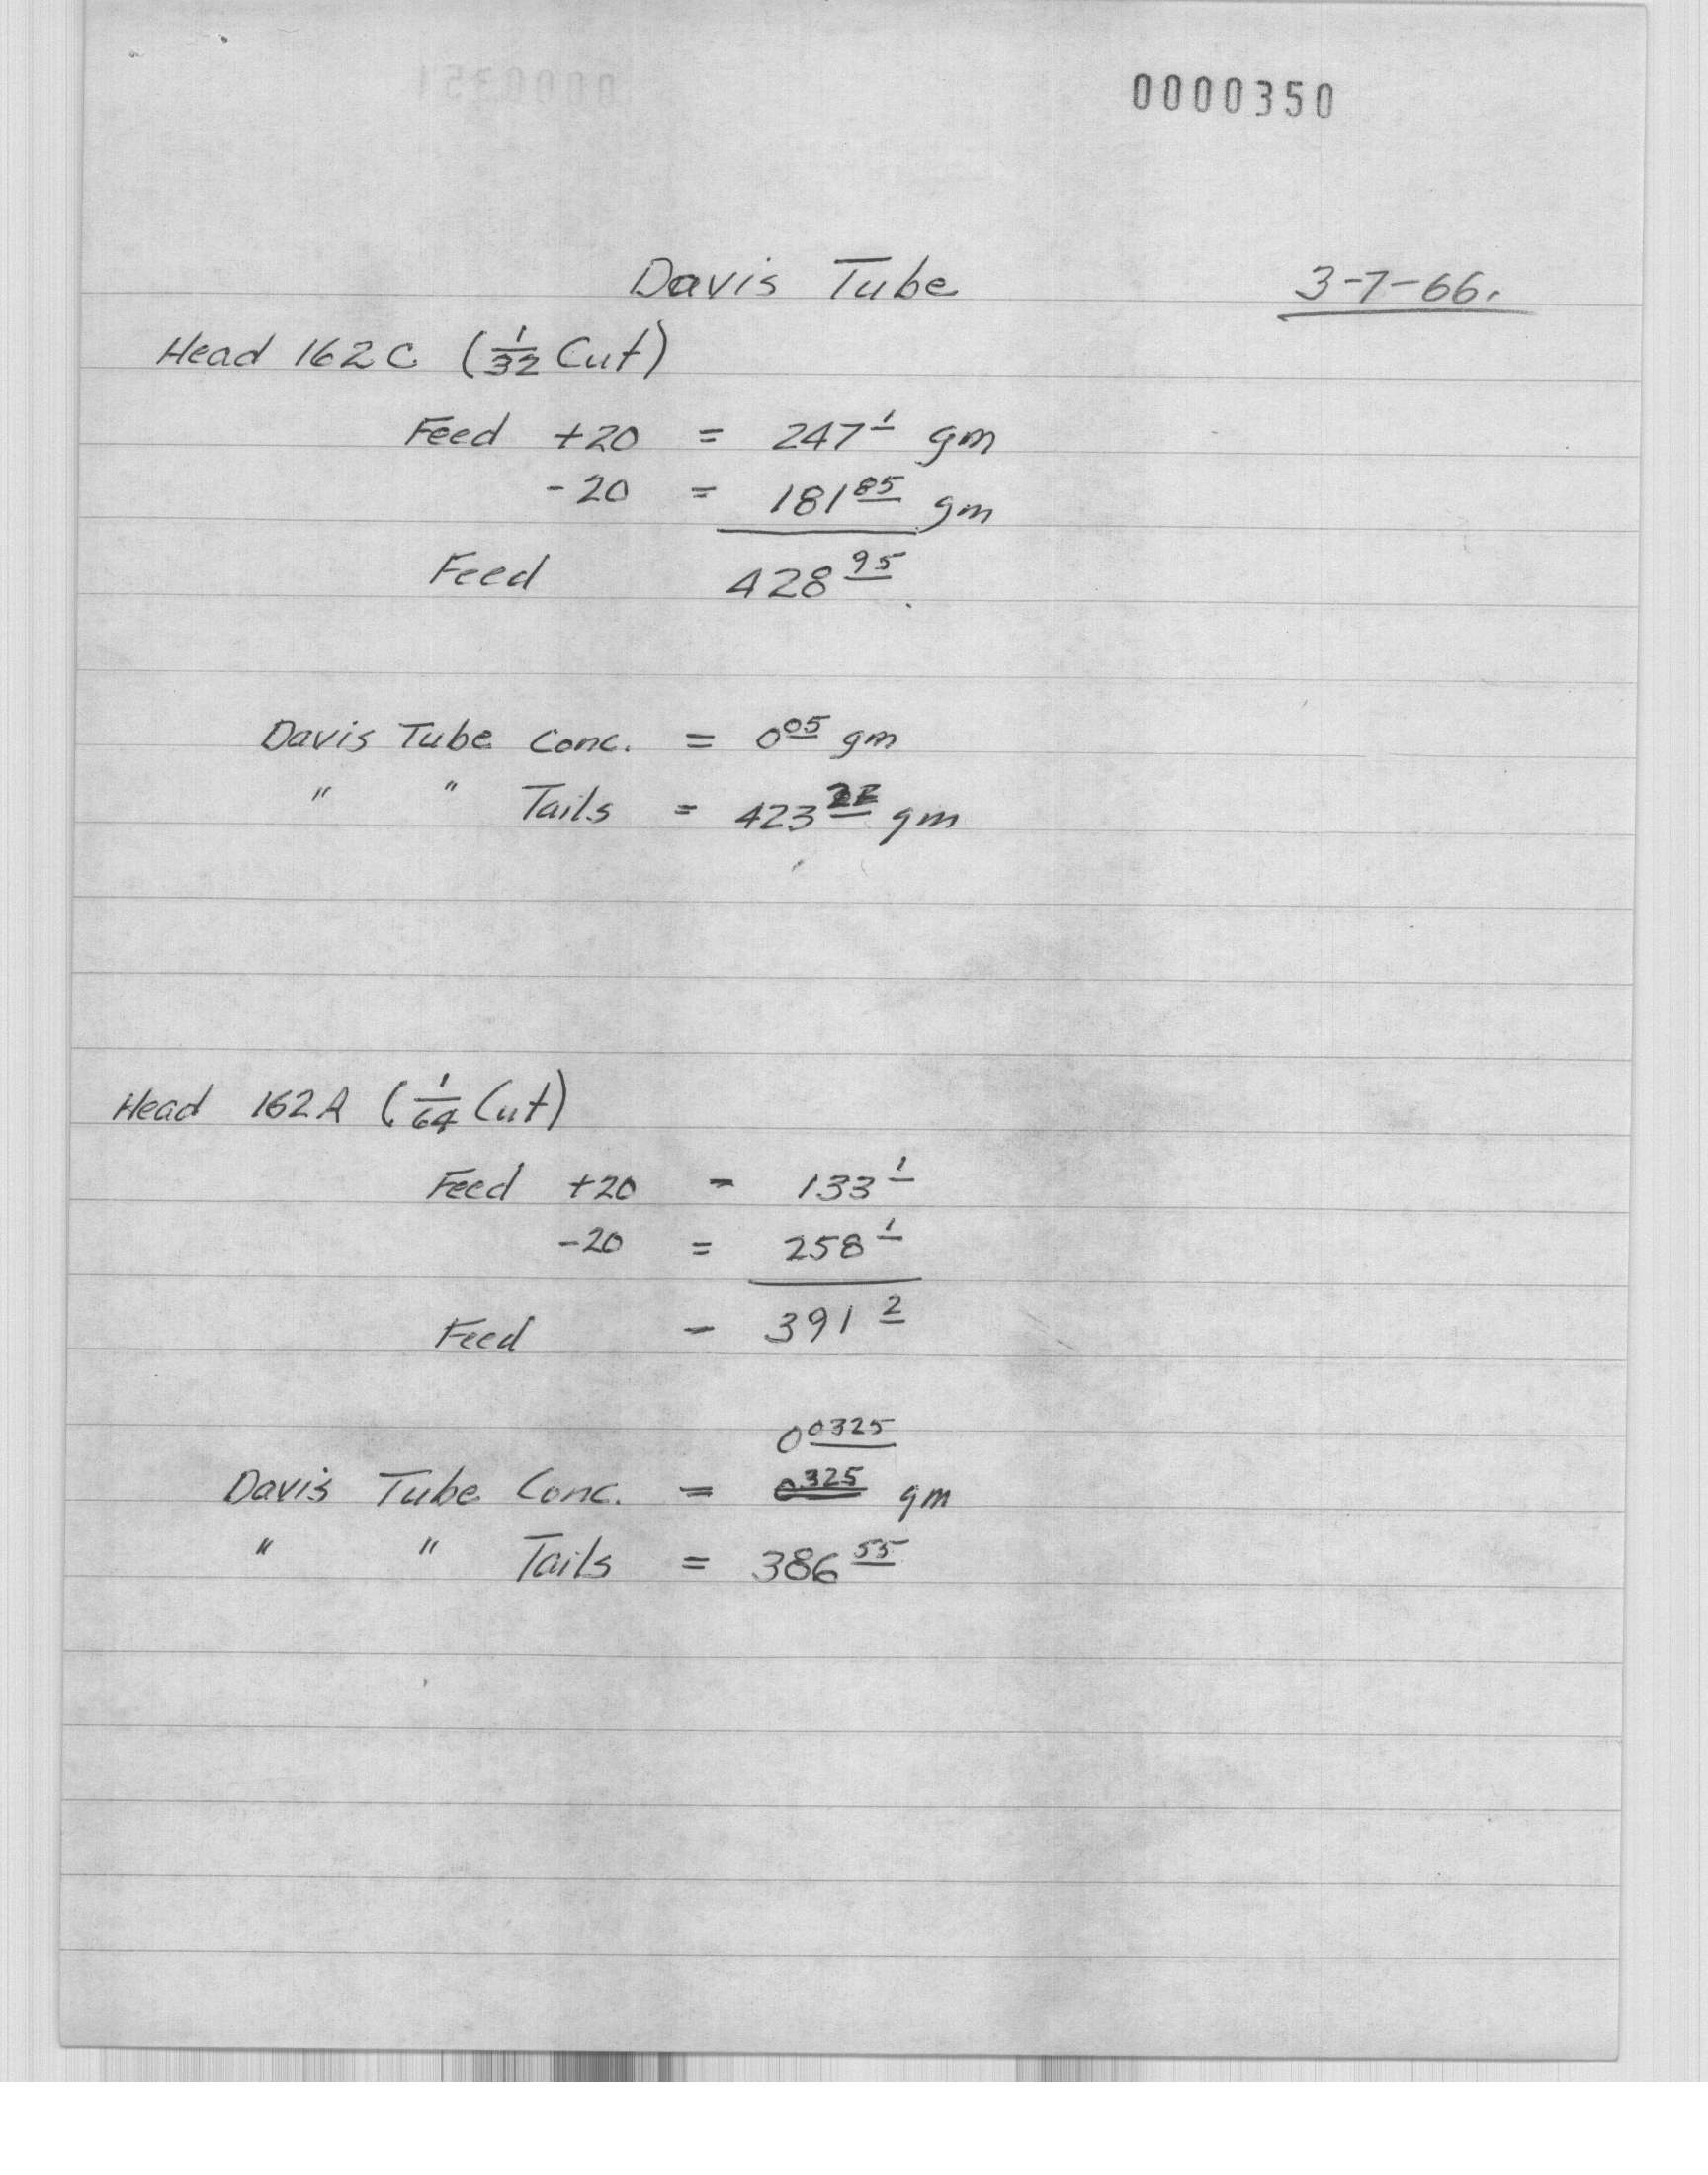 0000350
Davis Tube 3-7-66.
Head 162C (1/32 Cut)
Feed +20 = 247 1 gm
-20 = 181 85 gm
Feed 428 95
Davis Tube Conc. = 0 05 gm
" " Tails = 423 gm
Head 162A (1/64 Cut)
Feed +20 - 133 1
-20 = 258 1
Feed - 391 2
0 0325
Davis Tube Conc. = 0.325 gm
" " Tails = 386 55